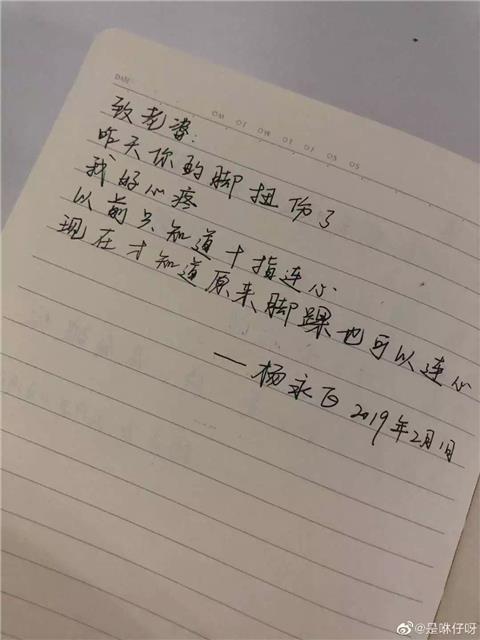 DATE
MO TU WE TH FR SA SU
致老婆：
昨天你的脚扭伤了
我好心疼
以前只知道十指连心
现在才知道原来脚踝也可以连心
——杨永
2019年2月1日
@是咻仔呀